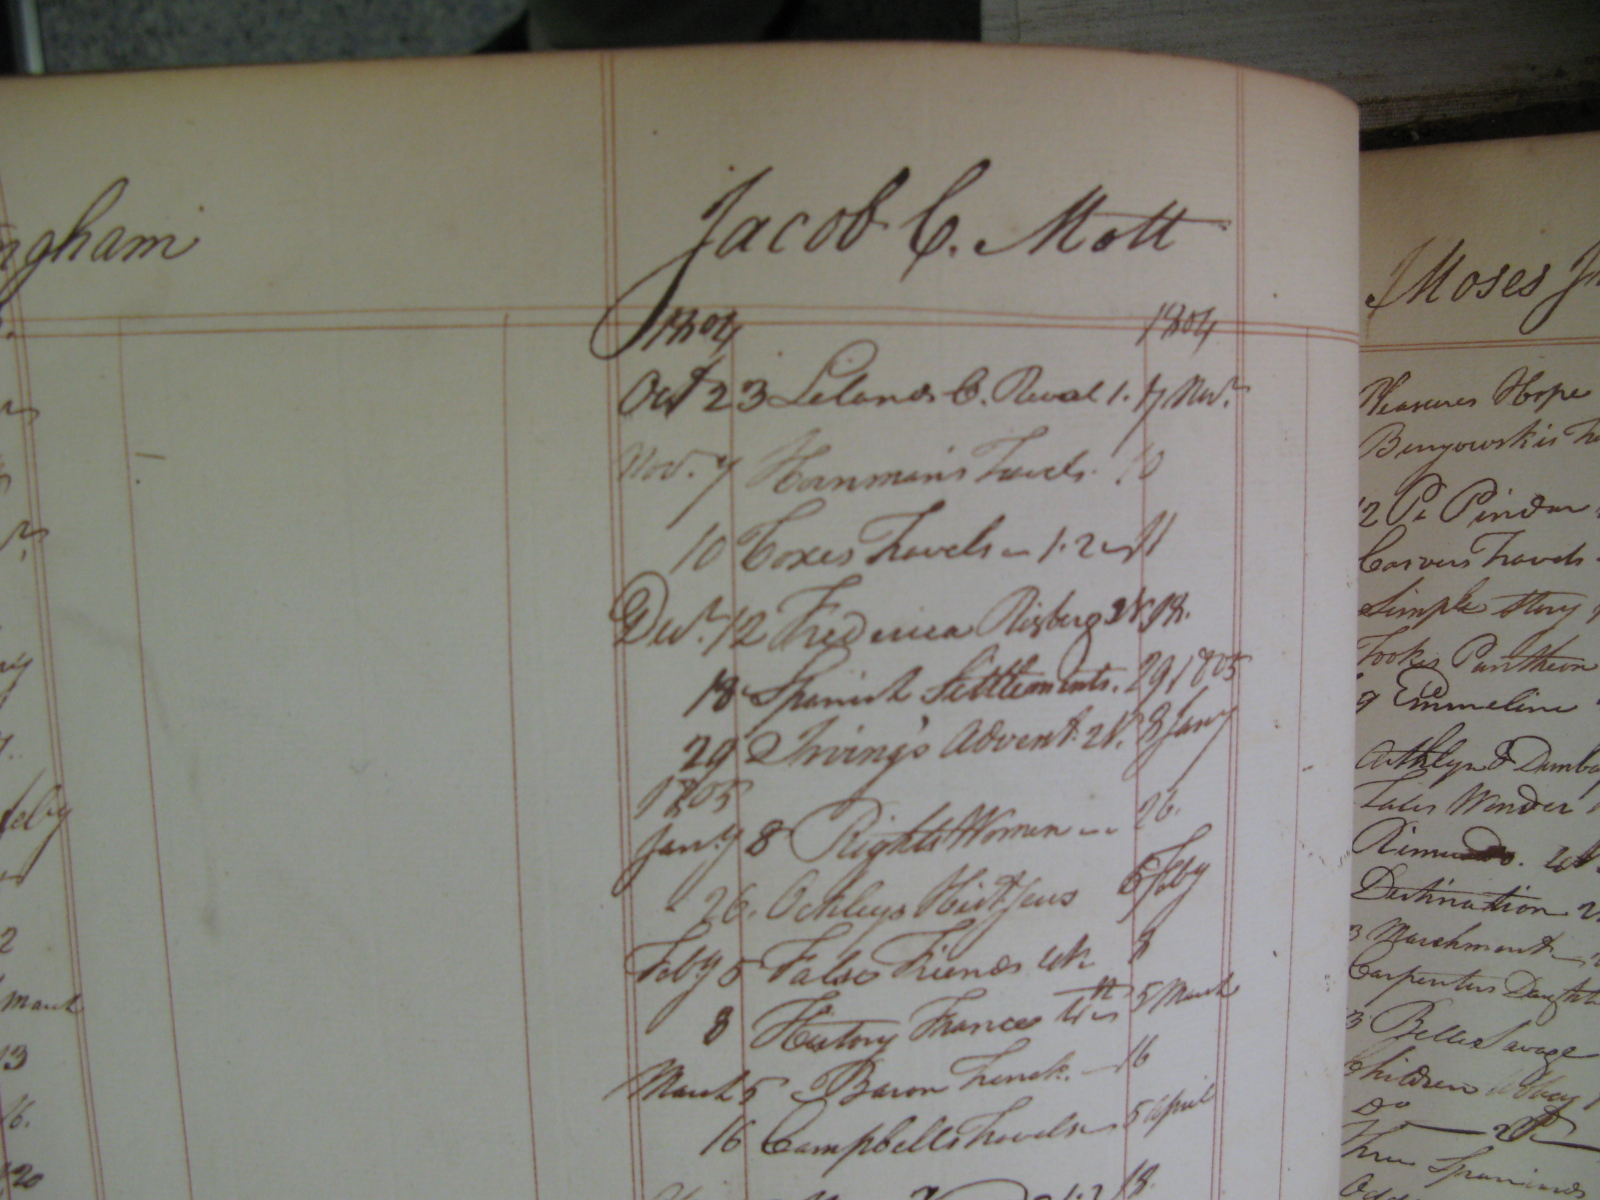 ngham
Jacob C. Mott
1804 1804
Oct 23 Lelands C. Reveal 1. 7 Novr.
Nov. 7 Hornman's Travels. 10
10 Coxes Travels 1.2 11
Decr. 12 Frederica Risberg 2V 18.
18 Spanish Settlements. 29 1805
29 Irving's Advent. 2V. 8 Jany
1805
Jany 8 Rights Women 26.
26. Ockleys Hist 5 Feby
Feby 5 False Friends 8
8 History France 5 March
March 5 Baron Trenck. 16
16 Campbells Travels 5 April
18.
feby
2
March
13
16.
20
Moses
Pleasures Hope
Benyowskis
12 P. Pindar
Carvers Travels
Simple Story
Tookes Pantheon
9 Emmeline
Athlyn & Dumba
Tales Wonder
Destination
3 Marchmont
Carpenters Daught
3 Belle Savage
Children Abbey
Do
Three Spaniards